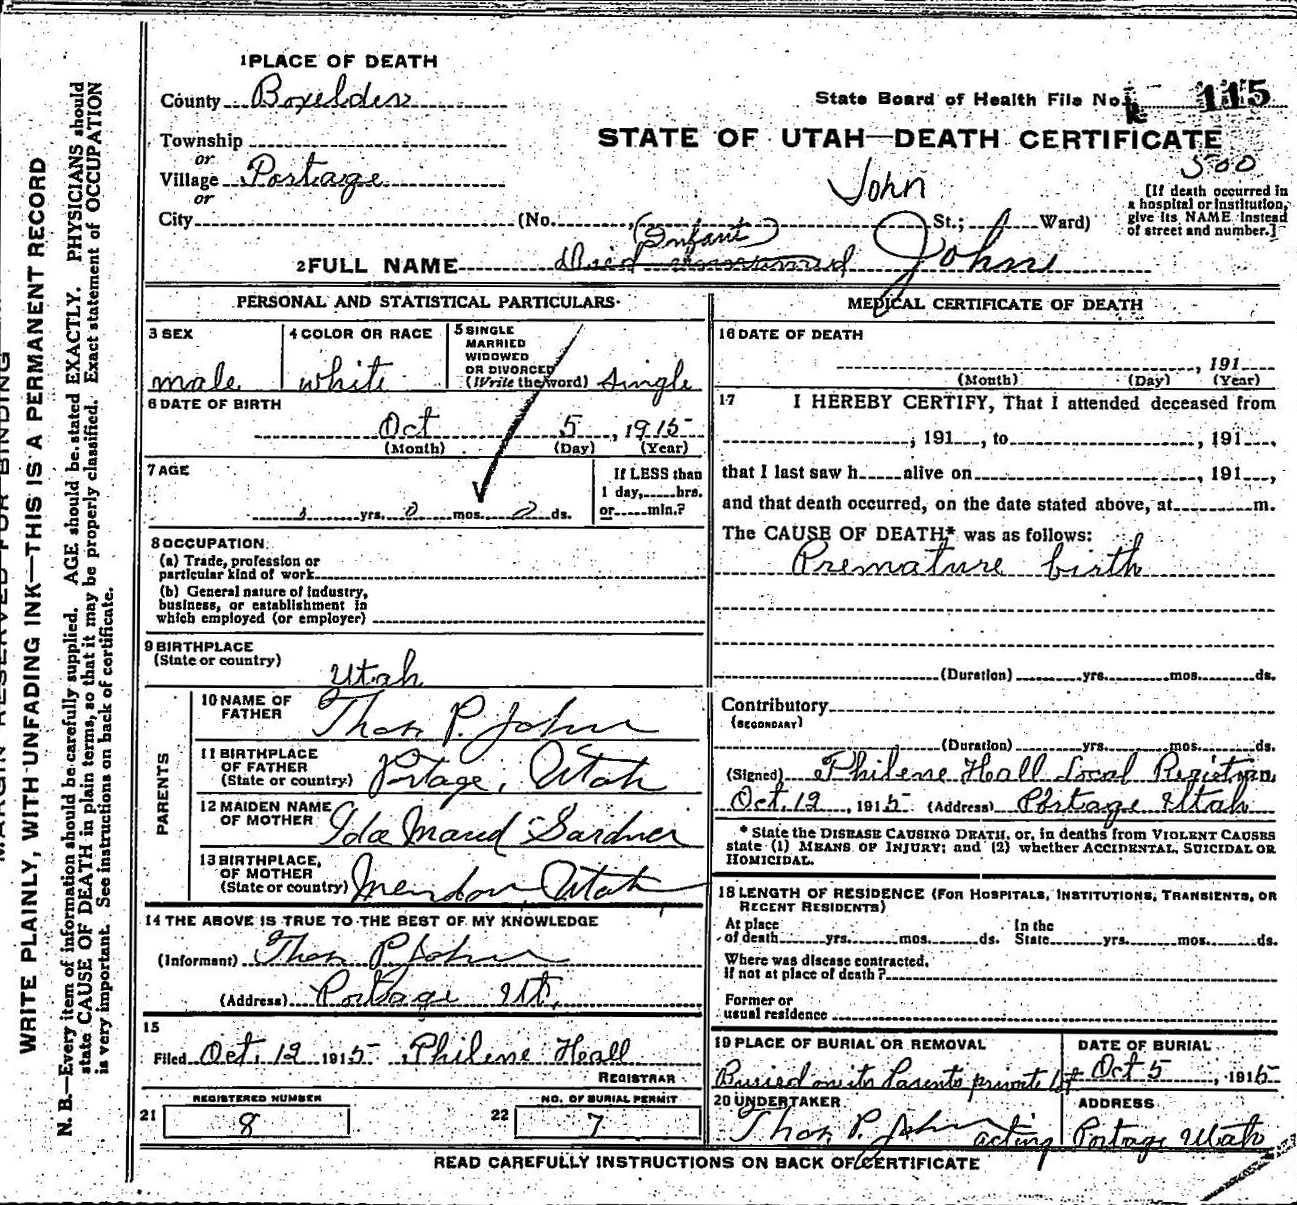 1 PLACE OF DEATH
County Boxelder
Township
or
Village Portage
or
City (No. St.; Ward)
State Board of Health File No. 115
STATE OF UTAH—DEATH CERTIFICATE
500
John
[If death occurred in a hospital or institution, give its NAME instead of street and number.]
(Infant)
2 FULL NAME Died unnamed John
PERSONAL AND STATISTICAL PARTICULARS
3 SEX
male
4 COLOR OR RACE
white
5 SINGLE
MARRIED
WIDOWED
OR DIVORCED
(Write the word) single
6 DATE OF BIRTH
Oct 5, 1915
(Month) (Day) (Year)
7 AGE
yrs. 0 mos. 0 ds.
If LESS than
1 day, hrs.
or min.?
8 OCCUPATION
(a) Trade, profession or
particular kind of work
(b) General nature of industry,
business, or establishment in
which employed (or employer)
9 BIRTHPLACE
(State or country)
Utah
PARENTS
10 NAME OF
FATHER Thos P. John
11 BIRTHPLACE
OF FATHER
(State or country) Portage, Utah
12 MAIDEN NAME
OF MOTHER Ida Maud Gardner
13 BIRTHPLACE,
OF MOTHER
(State or country) Mendon, Utah
14 THE ABOVE IS TRUE TO THE BEST OF MY KNOWLEDGE
(Informant) Thos P. John
(Address) Portage Ut.
15
Filed Oct. 12 1915 Philene Hall
REGISTRAR
REGISTERED NUMBER
21 8
NO. OF BURIAL PERMIT
22 7
MEDICAL CERTIFICATE OF DEATH
16 DATE OF DEATH
, 191
(Month) (Day) (Year)
17 I HEREBY CERTIFY, That I attended deceased from
, 191 , to , 191 ,
that I last saw h alive on , 191 ,
and that death occurred, on the date stated above, at m.
The CAUSE OF DEATH* was as follows:
Premature birth
(Duration) yrs. mos. ds.
Contributory
(SECONDARY)
(Duration) yrs. mos. ds.
(Signed) Philene Hall Local Registrar,
Oct. 12, 1915 (Address) Portage Utah
* State the DISEASE CAUSING DEATH, or, in deaths from VIOLENT CAUSES
state (1) MEANS OF INJURY; and (2) whether ACCIDENTAL, SUICIDAL OR
HOMICIDAL.
18 LENGTH OF RESIDENCE (FOR HOSPITALS, INSTITUTIONS, TRANSIENTS, OR
RECENT RESIDENTS)
At place
of death yrs. mos. ds. In the
State yrs. mos. ds.
Where was disease contracted,
if not at place of death?
Former or
usual residence
19 PLACE OF BURIAL OR REMOVAL
Buried on its Parents private lot
DATE OF BURIAL
Oct 5, 1915
20 UNDERTAKER
Thos P. John acting
ADDRESS
Portage Utah
READ CAREFULLY INSTRUCTIONS ON BACK OF CERTIFICATE
MARGIN RESERVED FOR BINDING
WRITE PLAINLY, WITH UNFADING INK—THIS IS A PERMANENT RECORD
N. B.—Every item of information should be carefully supplied. AGE should be stated EXACTLY. PHYSICIANS should
state CAUSE OF DEATH in plain terms, so that it may be properly classified. Exact statement of OCCUPATION
is very important. See instructions on back of certificate.